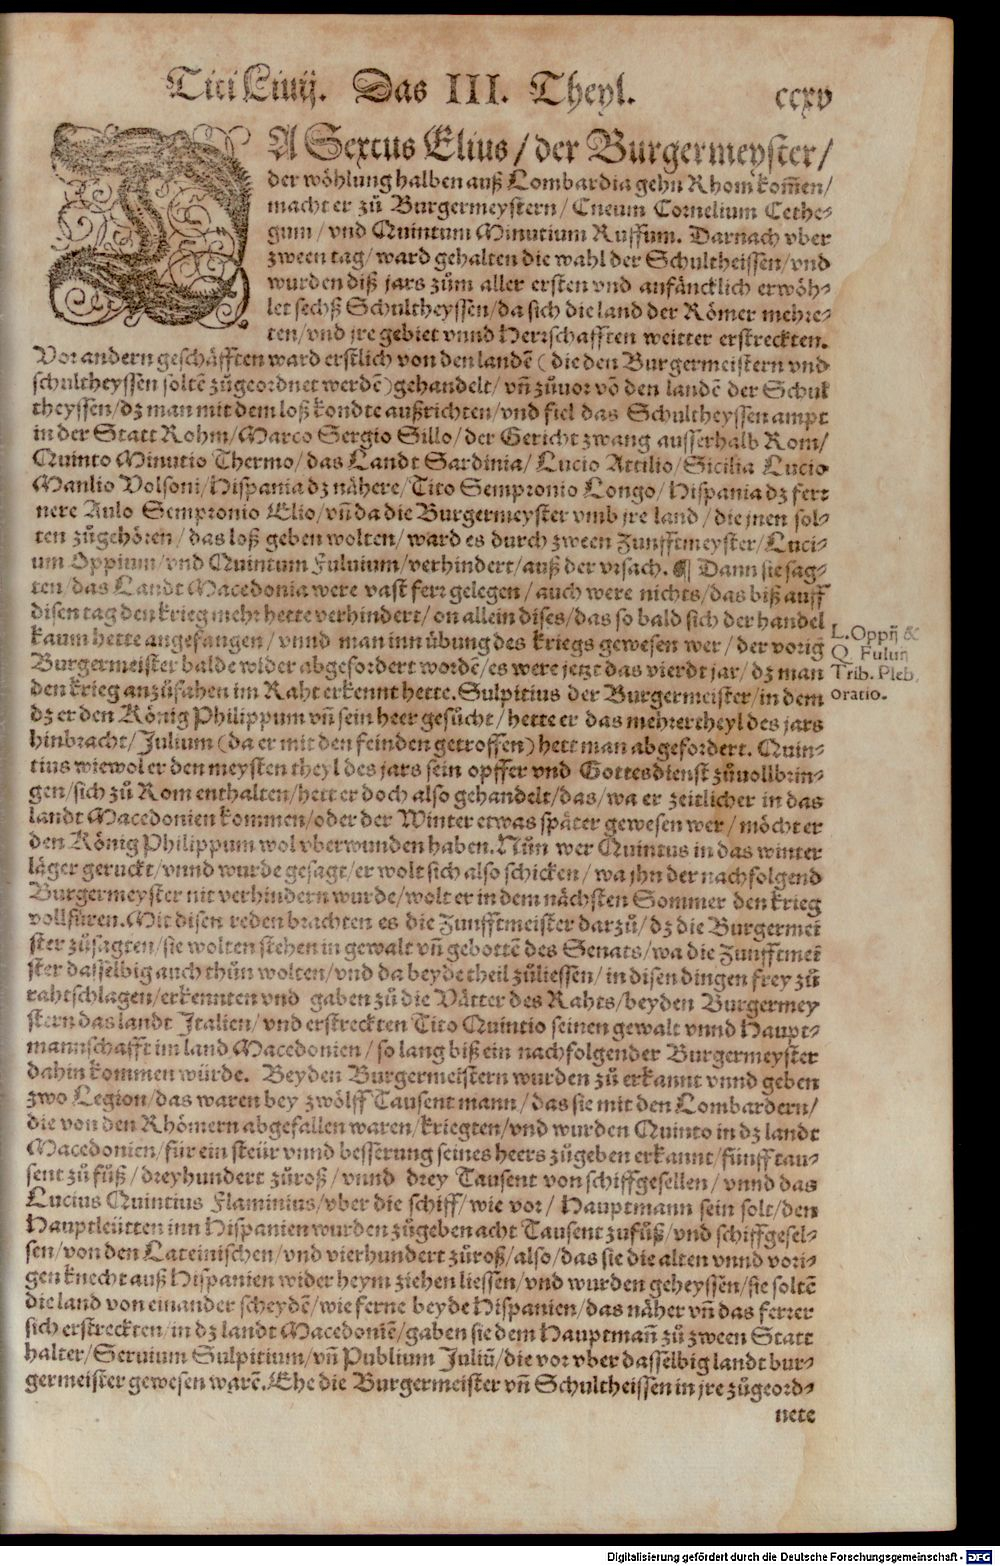 Titi Liuij. Das III. Theyl.
ccxv
DA Sextus Elius / der Burgermeyster /
der wöhlung halben auß Lombardia gehn Rhom kom̃en /
macht er zů Burgermeystern / Cneum Cornelium Cethe-
gum / vnd Quintum Minutium Ruffum. Darnach vber
zween tag / ward gehalten die wahl der Schultheissen / vnd
wurden diß jars zům aller ersten vnd anfäncklich erwöh-
let sechß Schultheyssen / da sich die land der Römer mehre-
ten / vnd jre gebiet vnnd Herrschafften weitter erstreckten.
Vor andern geschäfften ward erstlich von den landẽ ( die den Burgermeistern vnd
schultheyssen soltẽ zůgeordnet werdẽ ) gehandelt / vñ zůuor võ den landẽ der Schul
theyssen / dz man mit dem loß kondte außrichten / vnd fiel das Schultheyssen ampt
in der Statt Rohm / Marco Sergio Sillo / der Gericht zwang ausserhalb Rom /
Quinto Minutio Thermo / das Landt Sardinia / Lucio Attilio / Sicilia Lucio
Manlio Volsoni / Hispania dz nähere / Tito Sempronio Longo / Hispania dz ferr
nere Aulo Sempronio Elio / vñ da die Burgermeyster vmb jre land / die jnen sol-
ten zůgehören / das loß geben wolten / ward es durch zween Zunfftmeyster / Luci-
um Oppium / vnd Quintum Fuluium / verhindert / auß der vrsach. ¶ Dann sie sag-
ten / das Landt Macedonia were vast ferr gelegen / auch were nichts / das biß auff
disen tag den krieg mehr hette verhindert / on allein dises / das so bald sich der handel
kaum hette angefangen / vnnd man inn übung des kriegs gewesen wer / der vorig
Burgermeister balde wider abgefordert wordẽ / es were jetzt das vierdt jar / dz man
den krieg anzůfahen im Raht erkennt hette. Sulpitius der Burgermeister / in dem
dz er den König Philippum vñ sein heer gesůcht / hette er das mehrertheyl des jars
hinbracht / Julium ( da er mit den feinden getroffen ) hett man abgefordert. Quin-
tius wiewol er den meysten theyl des jars sein opffer vnd Gottesdienst zůuollbrin-
gen / sich zů Rom enthalten / hett er doch also gehandelt / das / wa er zeitlicher in das
landt Macedonien kommen / oder der Winter etwas später gewesen wer / möcht er
den König Philippum wol vberwunden haben. Nůn wer Quintus in das winter
läger geruckt / vnnd wurde gesagt / er wolt sich also schicken / wa jhn der nachfolgend
Burgermeyster nit verhindern wurde / wolt er in dem nächsten Sommer den krieg
vollfüren. Mit disen reden brachten es die Zunfftmeister darzů / dz die Burgermei
ster zůsagten / sie wolten stehen in gewalt vñ gebottẽ des Senats / wa die Zunfftmei
ster dasselbig auch thůn wolten / vnd da beyde theil zůliessen / in disen dingen frey zů
rahtschlagen / erkennten vnd gaben zů die Vätter des Rahts / beyden Burgermey
stern das landt Italien / vnd erstreckten Tito Quintio seinen gewalt vnnd Haupt-
mannschafft im land Macedonien / so lang biß ein nachfolgender Burgermeyster
dahin kommen würde. Beyden Burgermeistern wurden zů erkannt vnnd geben
zwo Legion / das waren bey zwölff Tausent mann / das sie mit den Lombardern /
die von den Rhömern abgefallen waren / kriegten / vnd wurden Quinto in dz landt
Macedonien / für ein steür vnnd besserung seines heers zůgeben erkannt / fünff tau-
sent zů fůß / dreyhundert zůroß / vnnd drey Tausent von schiffgesellen / vnnd das
Lucius Quintius Flaminius / vber die schiff / wie vor / Hauptmann sein solt / den
Hauptleütten inn Hispanien wurden zůgeben acht Tausent zufůß / vnd schiffgesel-
sen / von den Lateinischen / vnd vierhundert zůroß / also / das sie die alten vnnd vori-
gen knecht auß Hispanien wider heym ziehen liessen / vnd wurden geheyssen / sie soltẽ
die land von einander scheydẽ / wie ferne beyde Hispanien / das näher vñ das ferrer
sich erstreckten / in dz landt Macedoniẽ / gaben sie dem Hauptmañ zů zween Statt
halter / Seruium Sulpitium / vñ Publium Juliũ / die vor vber dasselbig landt bur-
germeister gewesen warẽ. Ehe die Burgermeister vñ Schultheissen in jre zůgeord-
nete
L. Oppij &
Q. Fuluij
Trib. Pleb.
oratio.
Digitalisierung gefördert durch die Deutsche Forschungsgemeinschaft - DFG